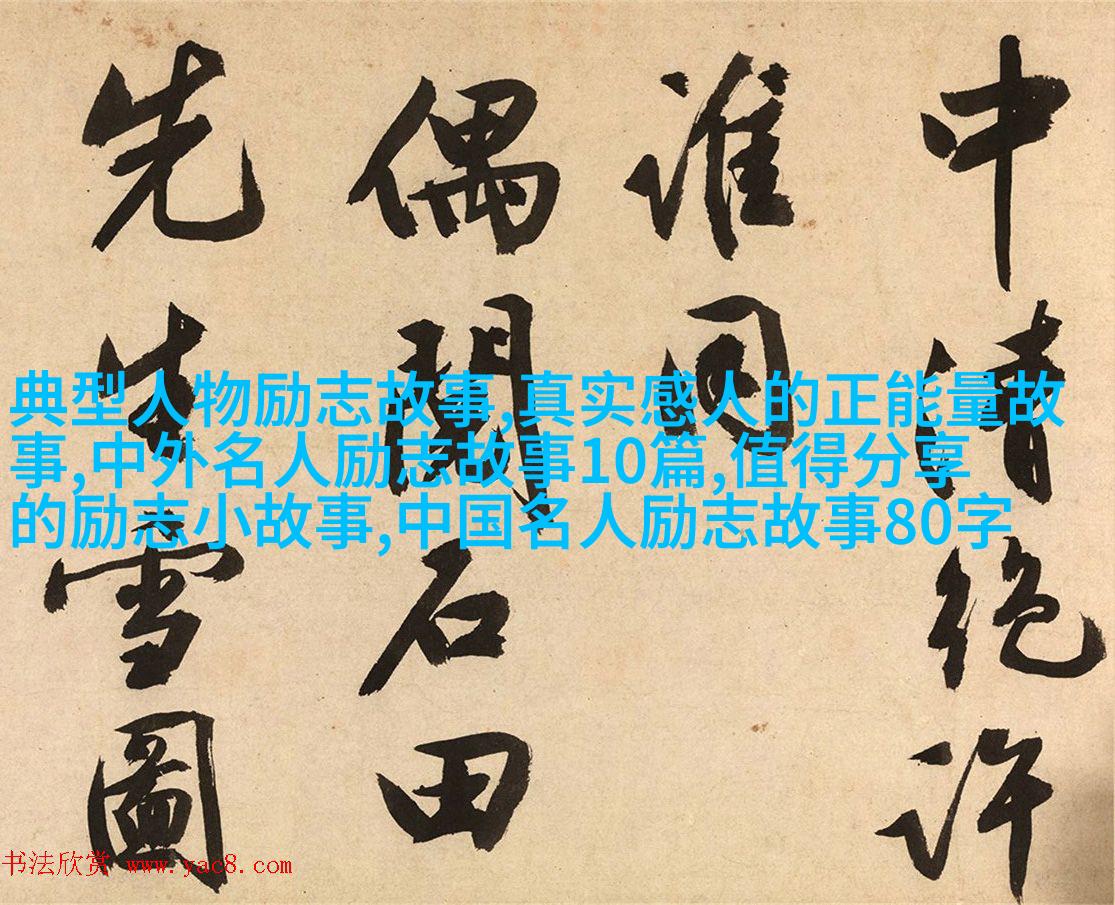 中清絶許
誰同
偶閱石田
先生雪圖
典型人物励志故事,真实感人的正能量故
事,中外名人励志故事10篇,值得分享
的励志小故事,中国名人励志故事80字
书法欣赏 www.yac8.com